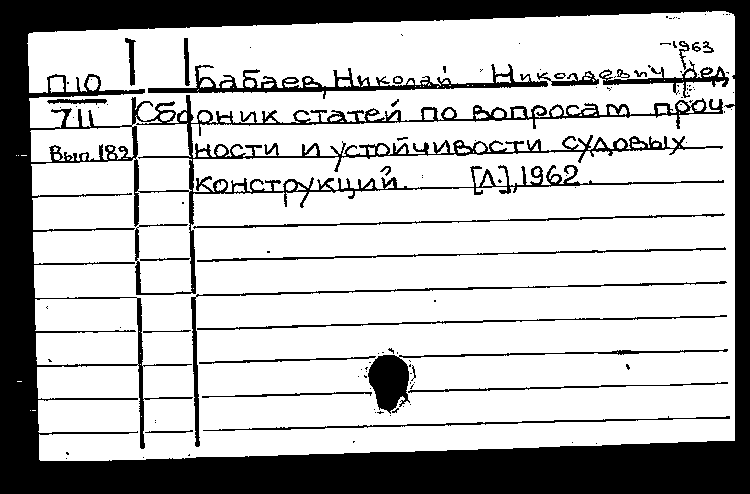 1963
П10 Бабаев, Николай Николаевич, ред.
711 Сборник статей по вопросам проч-
Вып. 182 ности и устойчивости судовых
конструкций. [Л.], 1962.